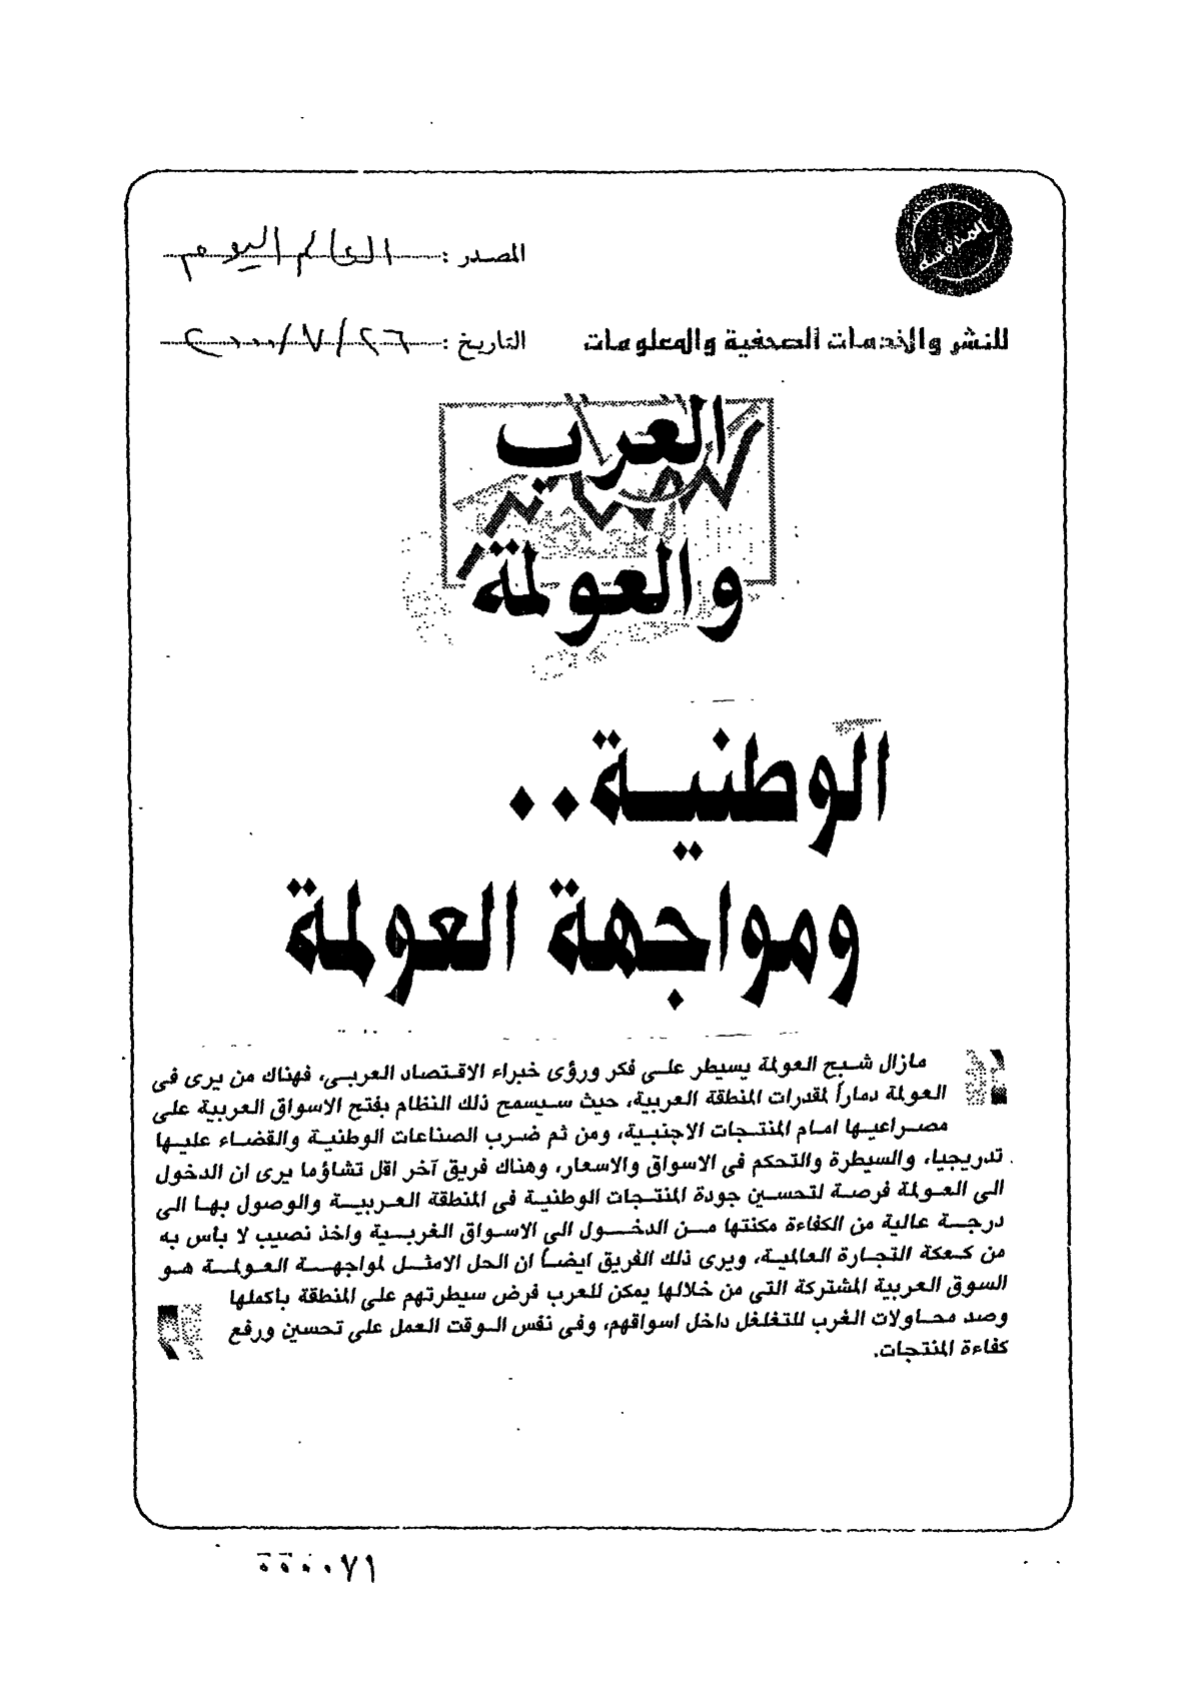 المصدر : العالم اليوم
للنشر والخدمات الصحفية والمعلومات
التاريخ : ٢٦/٧/٢٠٠٠
العرب
والعولمة
الوطنية..
ومواجهة العولمة
مازال شبح العولمة يسيطر على فكر ورؤى خبراء الاقتصاد العربى، فهناك من يرى فى
العولمة دماراً لمقدرات المنطقة العربية، حيث سيسمح ذلك النظام بفتح الاسواق العربية على
مصراعيها امام المنتجات الاجنبية، ومن ثم ضرب الصناعات الوطنية والقضاء عليها
تدريجيا، والسيطرة والتحكم فى الاسواق والاسعار، وهناك فريق آخر اقل تشاؤما يرى ان الدخول
الى العولمة فرصة لتحسين جودة المنتجات الوطنية فى المنطقة العربية والوصول بها الى
درجة عالية من الكفاءة مكنتها من الدخول الى الاسواق الغربية واخذ نصيب لا بأس به
من كعكة التجارة العالمية، ويرى ذلك الفريق ايضاً ان الحل الامثل لمواجهة العولمة هو
السوق العربية المشتركة التى من خلالها يمكن للعرب فرض سيطرتهم على المنطقة باكملها
وصد محاولات الغرب للتغلغل داخل اسواقهم، وفى نفس الوقت العمل على تحسين ورفع
كفاءة المنتجات.